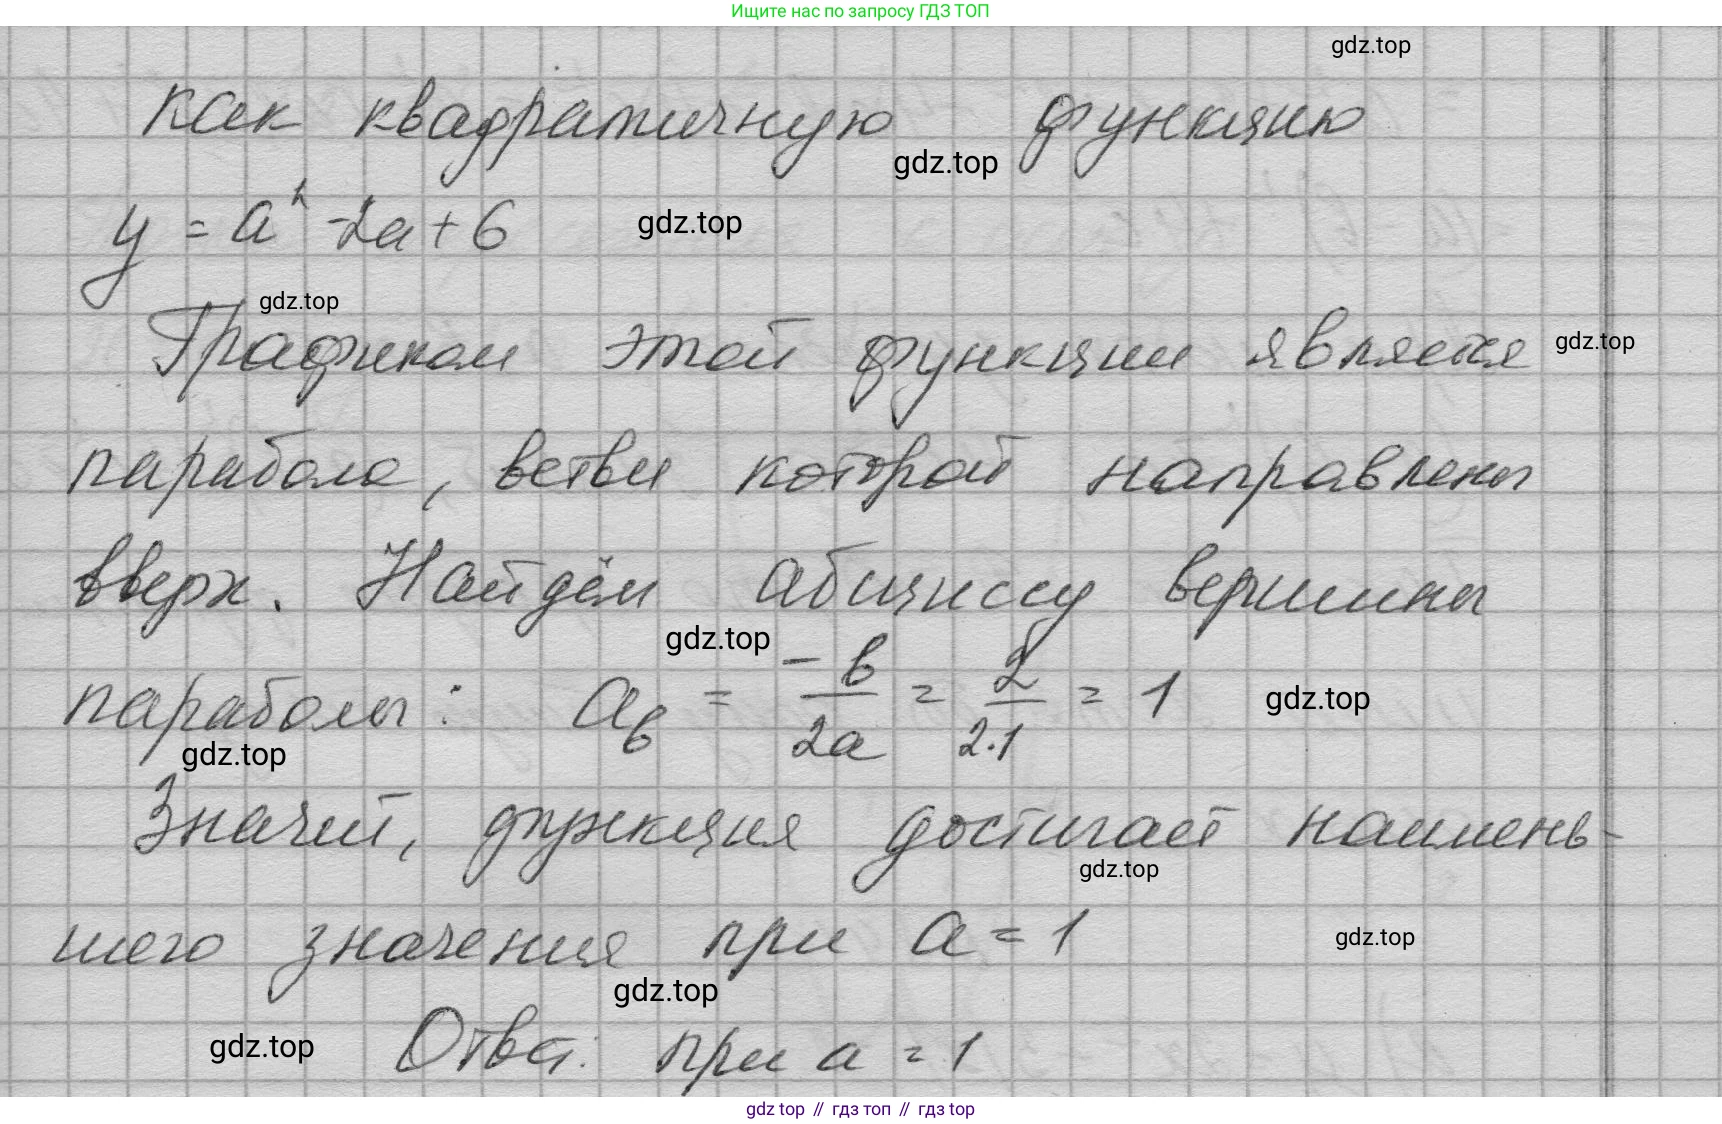 Ищите нас по запросу ГДЗ ТОП
gdz.top
как квадратичную функцию
gdz.top
y = a² - 2a + 6 gdz.top
gdz.top
Графиком этой функции является gdz.top
парабола, ветви которой направлены
вверх. Найдём абциссу вершины
gdz.top
параболы: aв = -в/2a = 2/2·1 = 1 gdz.top
gdz.top
Значит, функция достигает наимень-
gdz.top
шего значения при a = 1 gdz.top
gdz.top
gdz.top Ответ: при a = 1
gdz.top // гдз топ // gdz.top